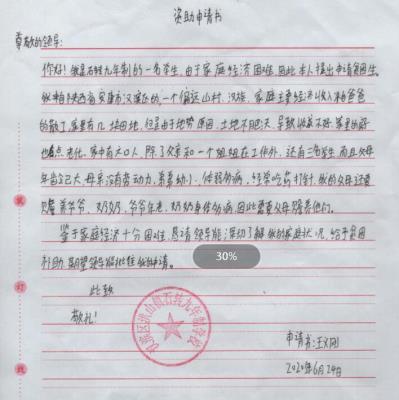 资助申请书
尊敬的领导:
你好!我是石转九年制的一名学生,由于家庭经济困难,因此本人提出申请贫困生。
我来自陕西省安康市汉滨区的一个偏远山村,汉族,家庭主要经济收入靠爸爸
的散工,家里有几块田地,但是由于地势原因,土地不肥沃,导致收益不好,家里的房
也老化,家中有六口人,除了父亲和一个姐姐在工作外,还有三名学生,而且父母
年当己大,母亲没有劳动力,弟弟幼小,体弱多病,经常吃药打针,我的父母还要
赡养爷爷、奶奶,爷爷年老,奶奶身体多病,因此需要父母赡养他们。
鉴于家庭经济十分困难,恳请领导能深切了解我的家庭状况,给予贫困
补助,期望领导能批准我的申请。
30%
此致
敬礼!
石转九年制学校
申请书:王文刚
2020年6月24日
装
订
线